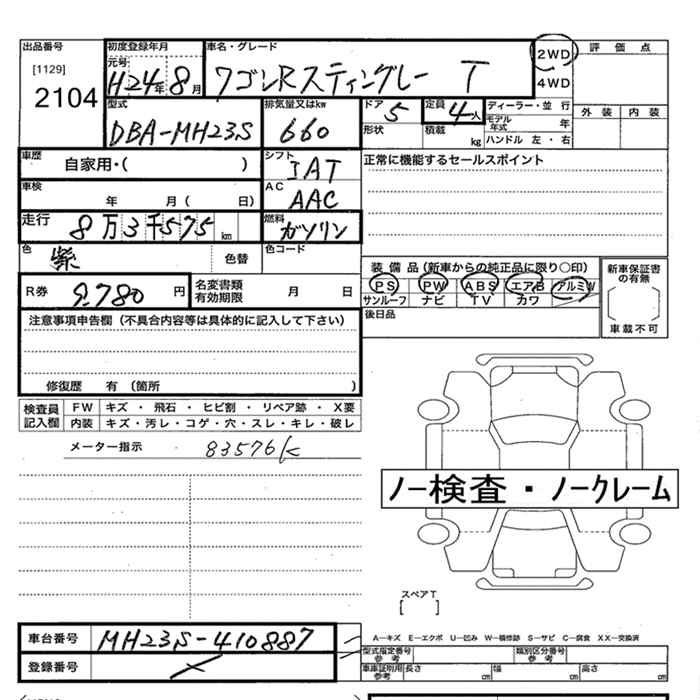 出品番号 初度登録年月 車名・グレード 2WD 評価点
[1129] 元号 H24年8月 ワゴンRスティングレー T 4WD
2104 型式 排気量又はkw ドア 定員 ディーラー・並行 外装 内装
DBA-MH23S 660 5 4人 モデル年式 年
形状 積載 kg ハンドル 左・右
車歴 自家用・( ) シフト IAT 正常に機能するセールスポイント
車検 年 月( 日) AC AAC
走行 8万3千575km 燃料 ガソリン
色 紫 色替 色コード
装備品(新車からの純正品に限り○印) 新車保証書の有無
R券 9,780円 名変書類有効期限 月 日 PS PW ABS エアB アルミW
サンルーフ ナビ TV カワ
車載不可
注意事項申告欄(不具合内容等は具体的に記入して下さい) 後日品
修復歴 有(箇所 )
検査員記入欄 FW キズ・飛石・ヒビ割・リペア跡・X要
内装 キズ・汚レ・コゲ・穴・スレ・キレ・破レ
メーター指示 83576K
ノー検査・ノークレーム
スペアT
[ ]
車台番号 MH23S-410887 A―キズ E―エクボ U―凹み W―補修跡 S―サビ C―腐食 XX―交換済
登録番号 型式指定番号参考 類別区分番号参考
車庫証明用参考 長さ cm 幅 cm 高さ cm